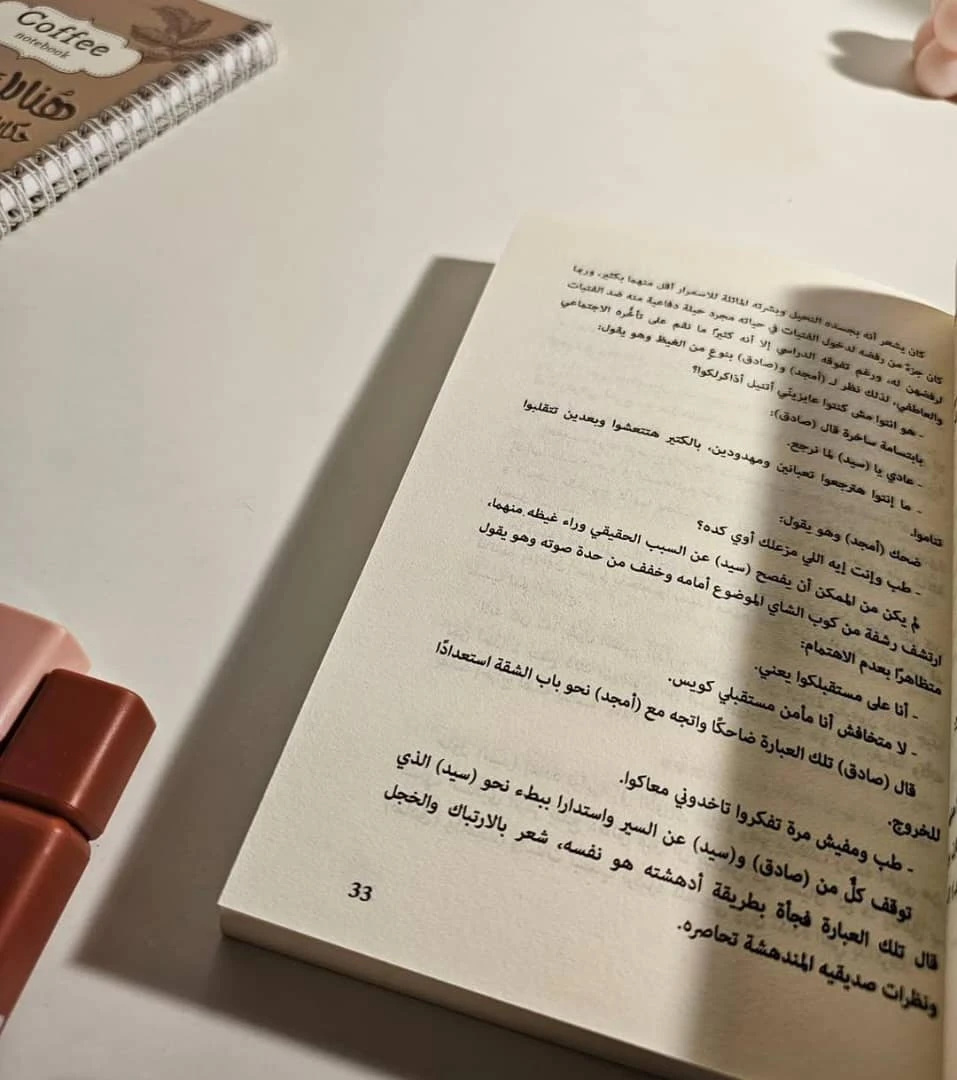 Coffee
notebook
هنا
كان يشعر أنه بجسده النحيل وبشرته المائلة للاسمرار أقل منهما بكثير، وربما
كان جزءً من رفضه لدخول الفتيات في حياته مجرد حيلة دفاعية منه ضد الفتيات
لرفضهن له، ورغم تفوقه الدراسي إلا أنه كثيرًا ما نقم على تأخُره الاجتماعي
والعاطفي، لذلك نظر لـ (أمجد) و(صادق) بنوعٍ من الغيظ وهو يقول:
- هو انتوا مش كنتوا عايزينّي أتنيل أذاكرلكوا؟
بابتسامة ساخرة قال (صادق):
- عادي يا (سيد) لما نرجع.
- ما إنتوا هترجعوا تعبانين ومهدودين، بالكتير هتتعشوا وبعدين تتقلبوا
تناموا.
ضحك (أمجد) وهو يقول:
- طب وإنت إيه اللي مزعلك أوي كده؟
لم يكن من الممكن أن يفصح (سيد) عن السبب الحقيقي وراء غيظه منهما،
ارتشف رشفة من كوب الشاي الموضوع أمامه وخفف من حدة صوته وهو يقول
متظاهرًا بعدم الاهتمام:
- أنا على مستقبلكوا يعني.
- لا متخافش أنا مأمن مستقبلي كويس.
قال (صادق) تلك العبارة ضاحكًا واتجه مع (أمجد) نحو باب الشقة استعدادًا
للخروج.
- طب ومفيش مرة تفكروا تاخدوني معاكوا.
توقف كلٌ من (صادق) و(سيد) عن السير واستدارا ببطء نحو (سيد) الذي
قال تلك العبارة فجأة بطريقة أدهشته هو نفسه، شعر بالارتباك والخجل
ونظرات صديقيه المندهشة تحاصره.
33